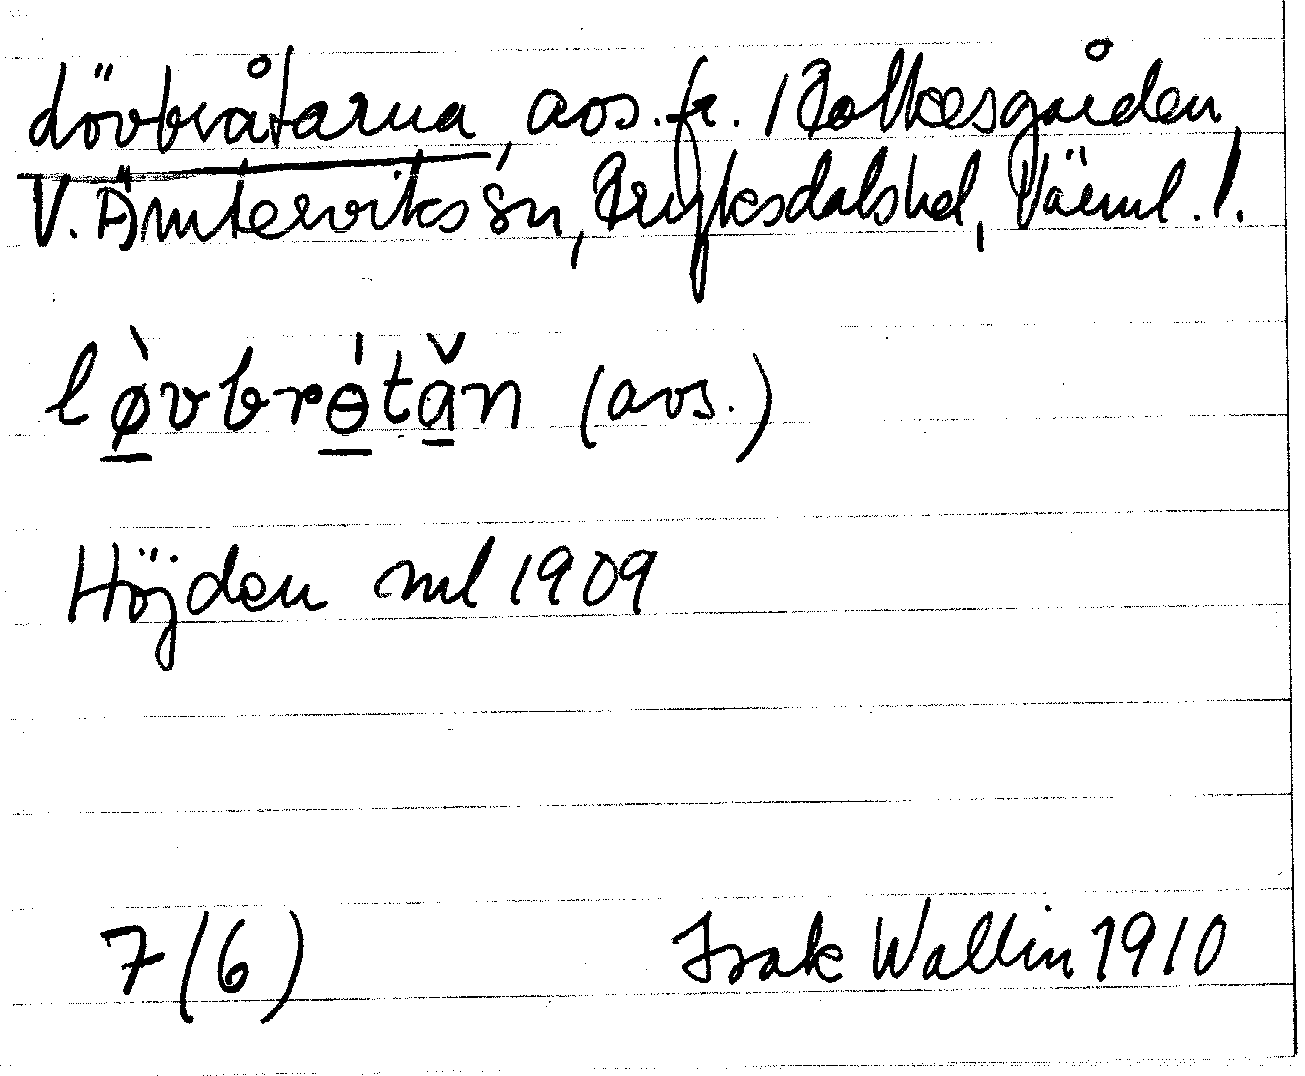 Lövbråtarna, avs. fr.
V. Ämterviks sn, Fryksdals hd, Värml. l.
lø̀vbrɵ́tăn (avs.)
Höjden ml 1909
7(6) Isak Wallin 1910